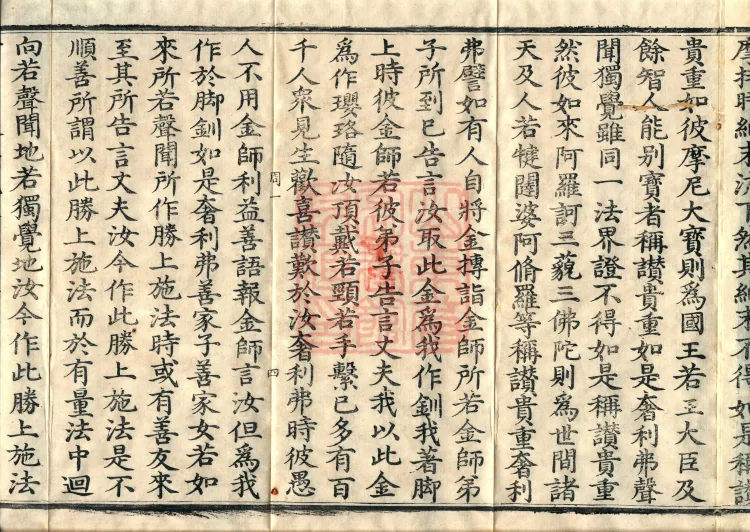 貴重如彼摩尼大寶則爲國王若王大臣及
餘智人能別寶者稱讃貴重如是奢利弗聲
聞獨覺雖同一法界證不得如是稱讃貴重
然彼如來阿羅訶三藐三佛陀則爲世間諸
天及人若犍闥婆阿脩羅等稱讃貴重奢利
弗譬如有人自將金摶詣金師所若金師弟
子所到已告言汝取此金爲我作釧我著脚
上時彼金師若彼弟子告言丈夫我以此金
爲作瓔珞隨汝頂戴若頸若手繫已多有百
千人衆見生歡喜讃歎於汝奢利弗時彼愚
周一 四
人不用金師利益善語報金師言汝但爲我
作於脚釧如是奢利弗善家子善家女若如
來所若聲聞所作勝上施法時或有善友來
至其所告言丈夫汝今作此勝上施法是不
順善所謂以此勝上施法而於有量法中迴
向若聲聞地若獨覺地汝今作此勝上施法